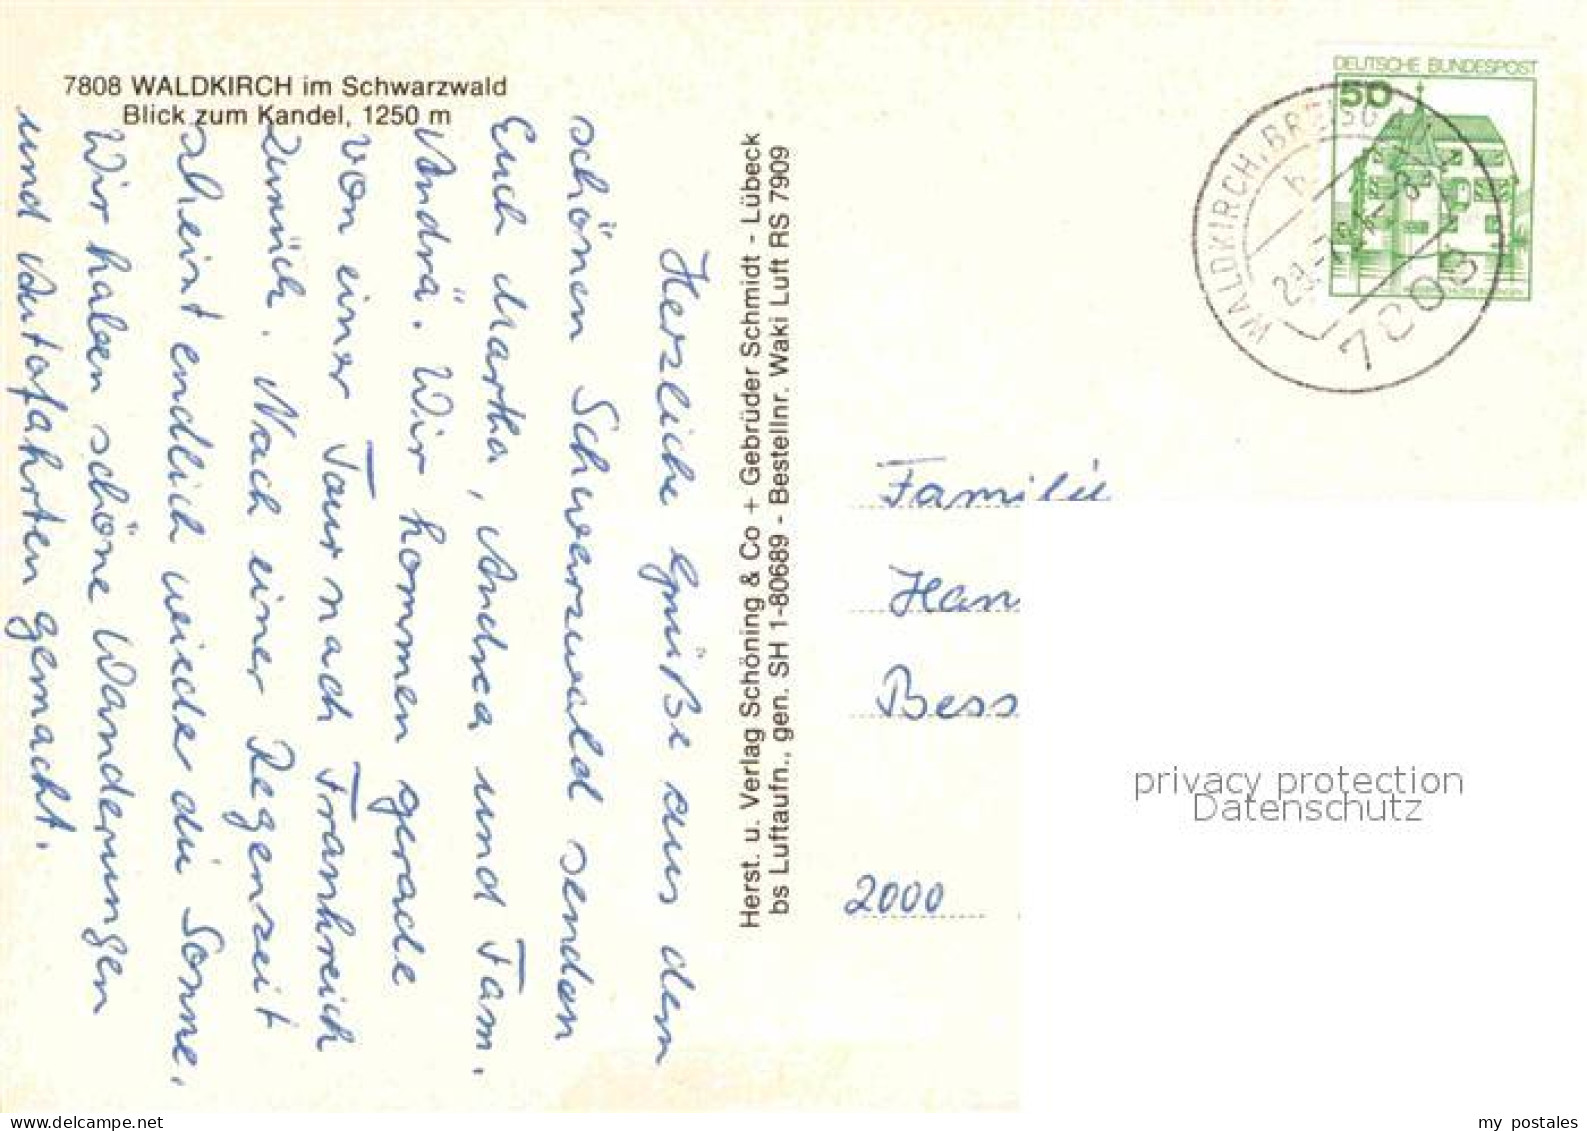 7808 WALDKIRCH im Schwarzwald
Blick zum Kandel, 1250 m
Herzliche Grüße aus dem
schönen Schwarzwald senden
Euch Martha, Andrea und Fam.
Andrä. Wir kommen gerade
von einer Tour nach Frankreich
zurück. Nach einer Regenzeit
scheint endlich wieder die Sonne.
Wir haben schöne Wanderungen
und Autofahrten gemacht.
Herst. u. Verlag Schöning & Co + Gebrüder Schmidt - Lübeck
bs Luftaufn., gen. SH 1-80689 - Bestellnr. Waki Luft RS 7909
DEUTSCHE BUNDESPOST
50
WALDKIRCH, BREISGAU
h
7808
Familie
Han
Bess
2000
privacy protection
Datenschutz
www.delcampe.net
my_postales